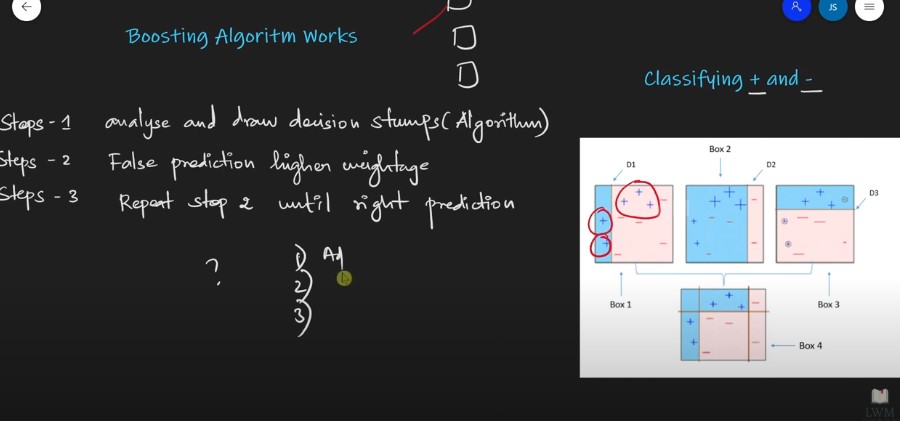 JS
Boosting Algoritm Works
Classifying + and -
Steps - 1 analyse and draw decision stumps (Algorithm)
Steps - 2 False prediction higher weightage
Steps - 3 Repeat step 2 until right prediction
?
1) Ad
2)
3)
Box 2
D1
D2
D3
Box 1
Box 3
Box 4
LWM